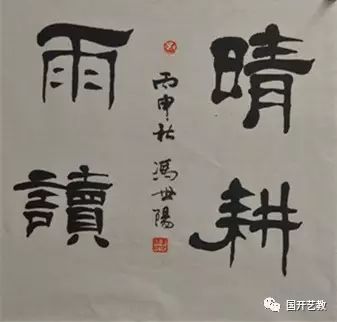 晴耕
雨讀
丙申秋 馮世陽
国开艺教